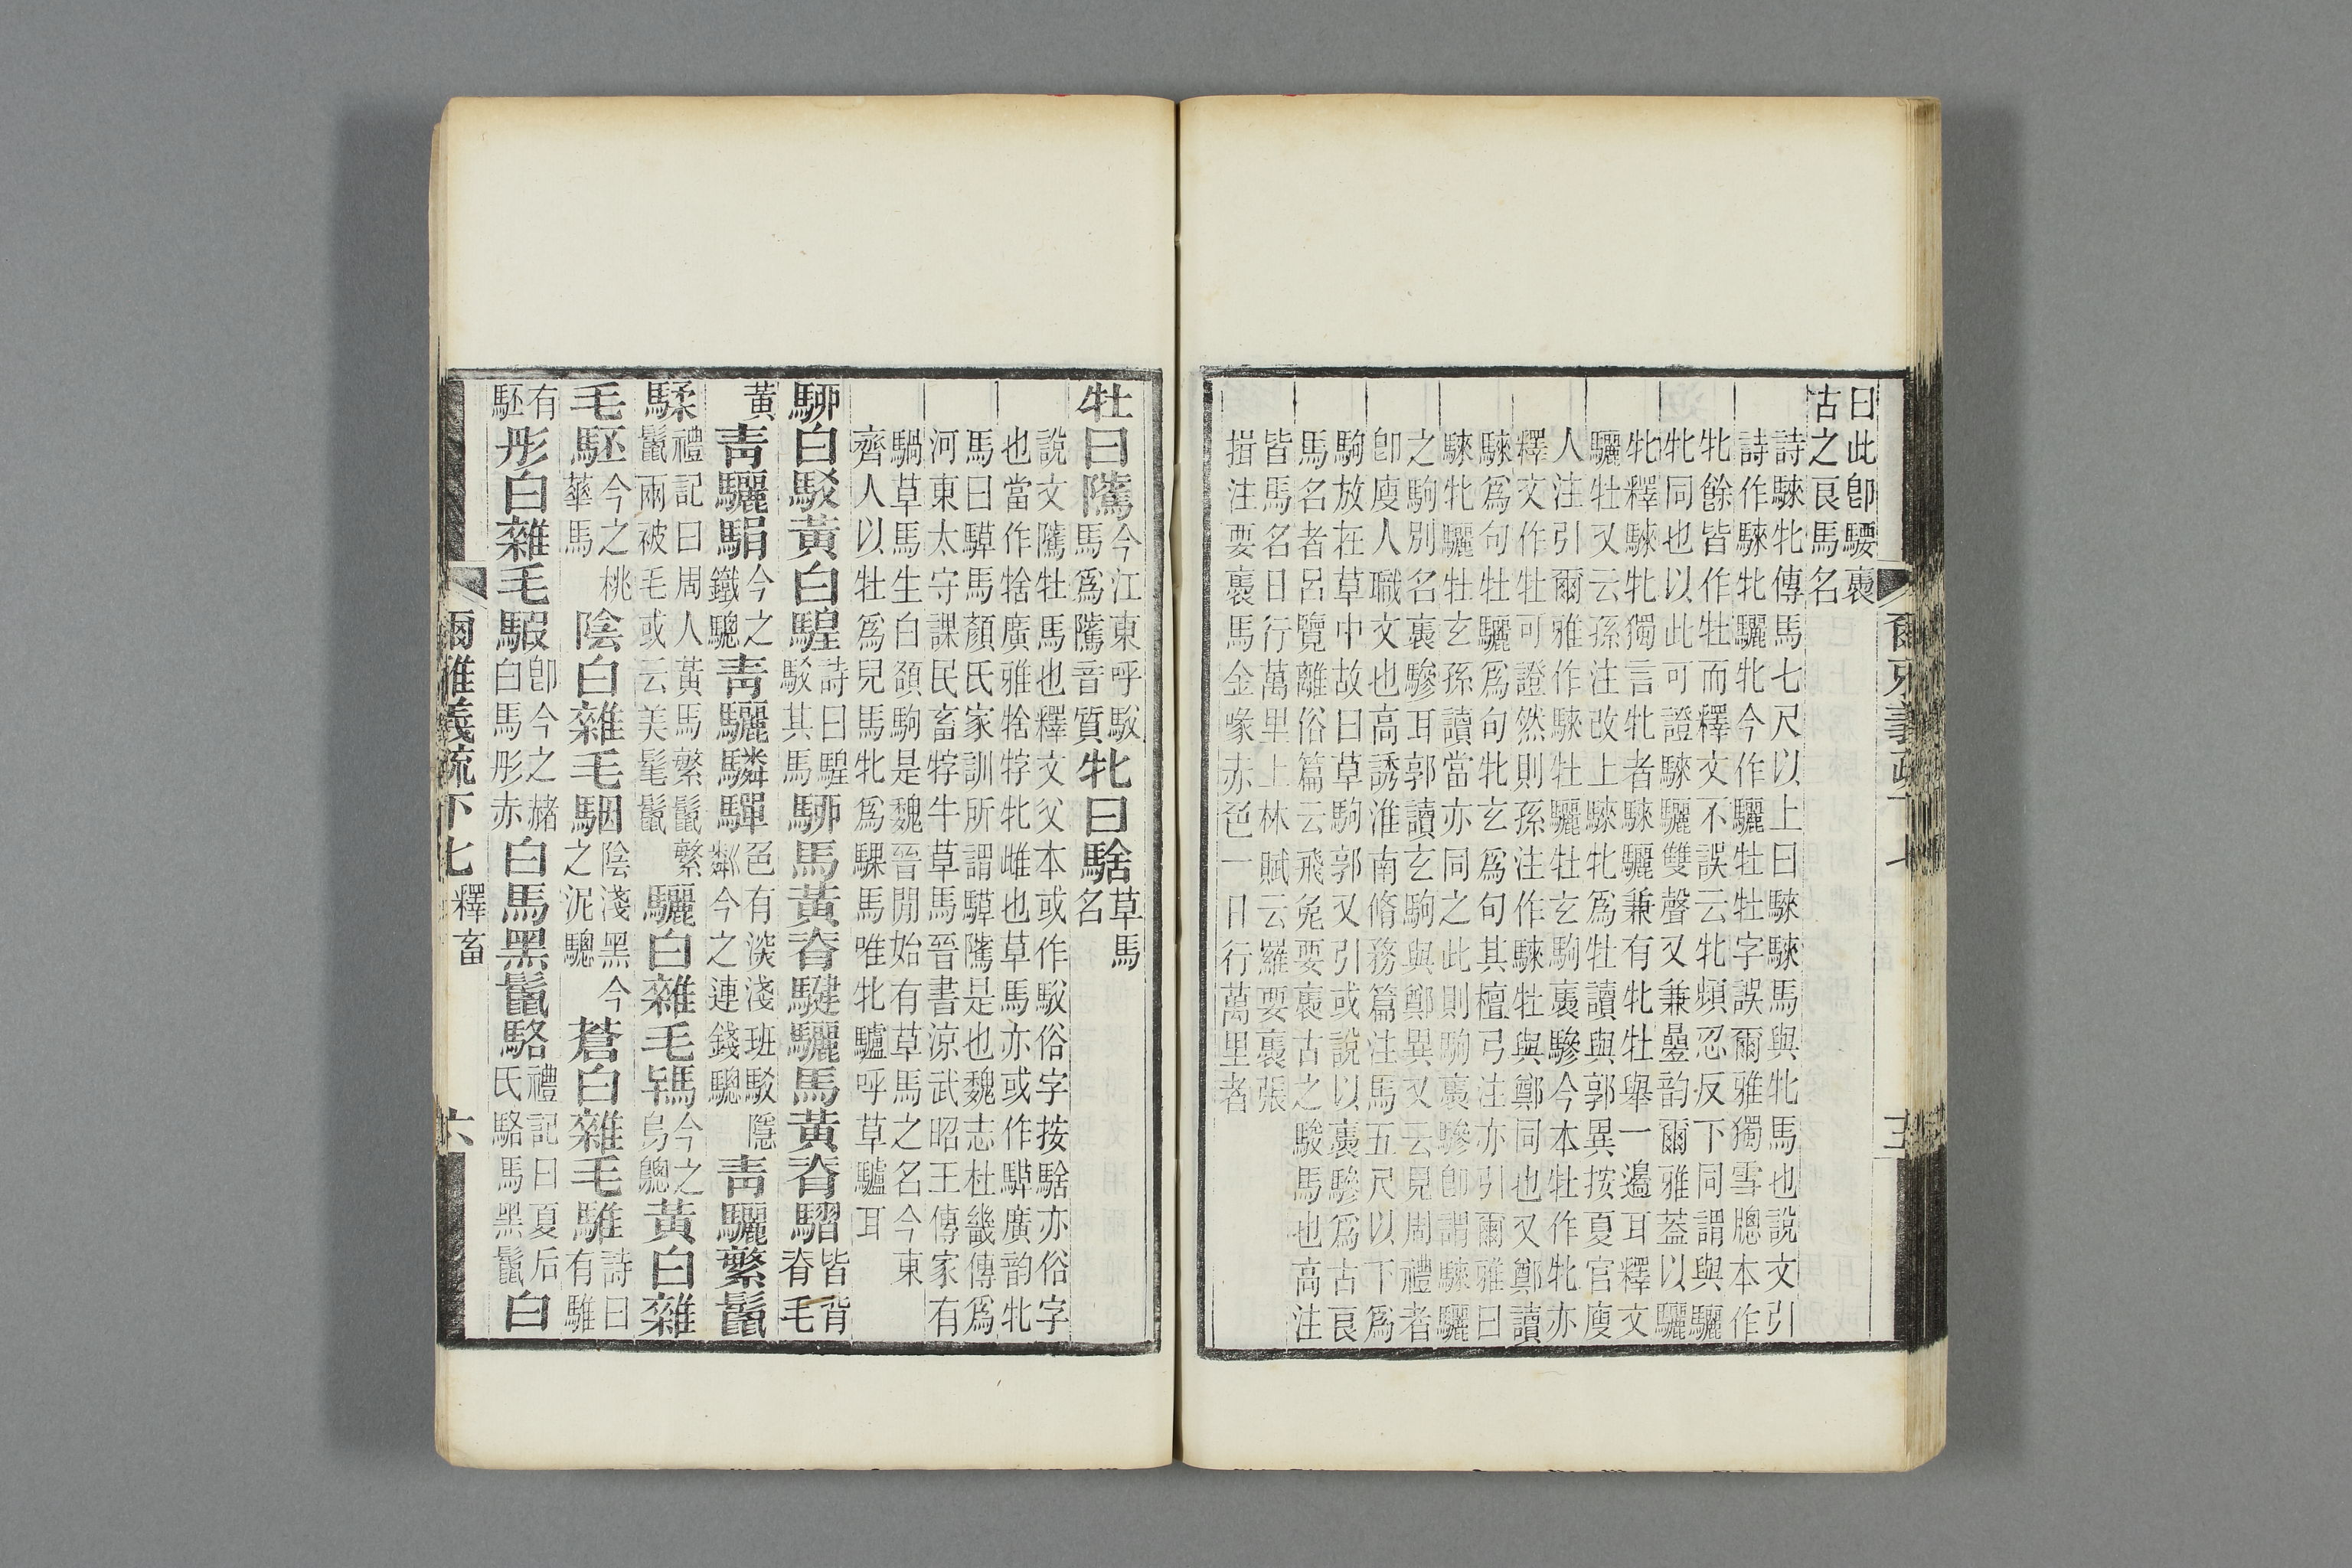 曰此卽騕褭
古之良馬名
詩騋牝傳馬七尺以上曰騋騋馬與牝馬也說文引
詩作騋牝驪牝今作驪牡牡字誤爾雅獨雪牕本作
牝餘皆作牡而釋文不誤云牝頻忍反下同謂與驪
牝同也以此可證騋驪雙聲又兼曡韵爾雅葢以驪
牝釋騋牝獨言牝者騋驪兼有牝牡舉一邉耳釋文
驪牡又云孫注改上騋牝爲牡讀與郭異按夏官廋
人注引爾雅作騋牡驪牡玄駒褭驂今本牡作牝亦
釋文作牡可證然則孫注作騋牡與鄭同也又鄭讀
騋爲句牡驪爲句牝玄爲句其檀弓注亦引爾雅曰
騋牝驪牡玄孫讀當亦同之此則駒褭驂卽謂騋驪
之駒別名褭驂耳郭讀玄駒與鄭異又云見周禮者
卽廋人職文也高誘淮南脩務篇注馬五尺以下爲
駒放在草中故曰草駒郭又引或說以褭驂爲古良
馬名者呂覽離俗篇云飛兔要褭古之駿馬也高注
皆馬名日行萬里上林賦云羅要褭張
揖注要褭馬金喙赤色一日行萬里者
爾雅義疏下七
五
牡曰騭今江東呼駁
馬爲騭音質牝曰騇草馬
名
說文騭牡馬也釋文父本或作駁俗字按騇亦俗字
也當作牿廣雅牿牸牝雌也草馬亦或作騲廣韵牝
馬曰騲馬顏氏家訓所謂騲騭是也魏志杜畿傳爲
河東太守課民畜牸牛草馬晉書涼武昭王傳家有
騧草馬生白頟駒是魏晉閒始有草馬之名今東
齊人以牡爲兒馬牝爲騍馬唯牝驢呼草驢耳
駵白駁黃白騜詩曰騜
駁其馬駵馬黃脊騝驪馬黃脊騽皆背
脊毛
黃青驪駽今之
鐵驄青驪驎驒色有深淺班駁隱
粼今之連錢驄青驪繁鬣
騥禮記曰周人黃馬繁鬣繁
鬣兩被毛或云美髦鬣驪白雜毛駂今之
烏驄黃白雜
毛駓今之桃
華馬陰白雜毛駰陰淺黑今
之泥驄蒼白雜毛騅詩曰
有騅
有
駓彤白雜毛騢卽今之赭
白馬彤赤白馬黑鬣駱禮記曰夏后
氏駱馬黑鬣白
爾雅義疏下七 釋畜
六